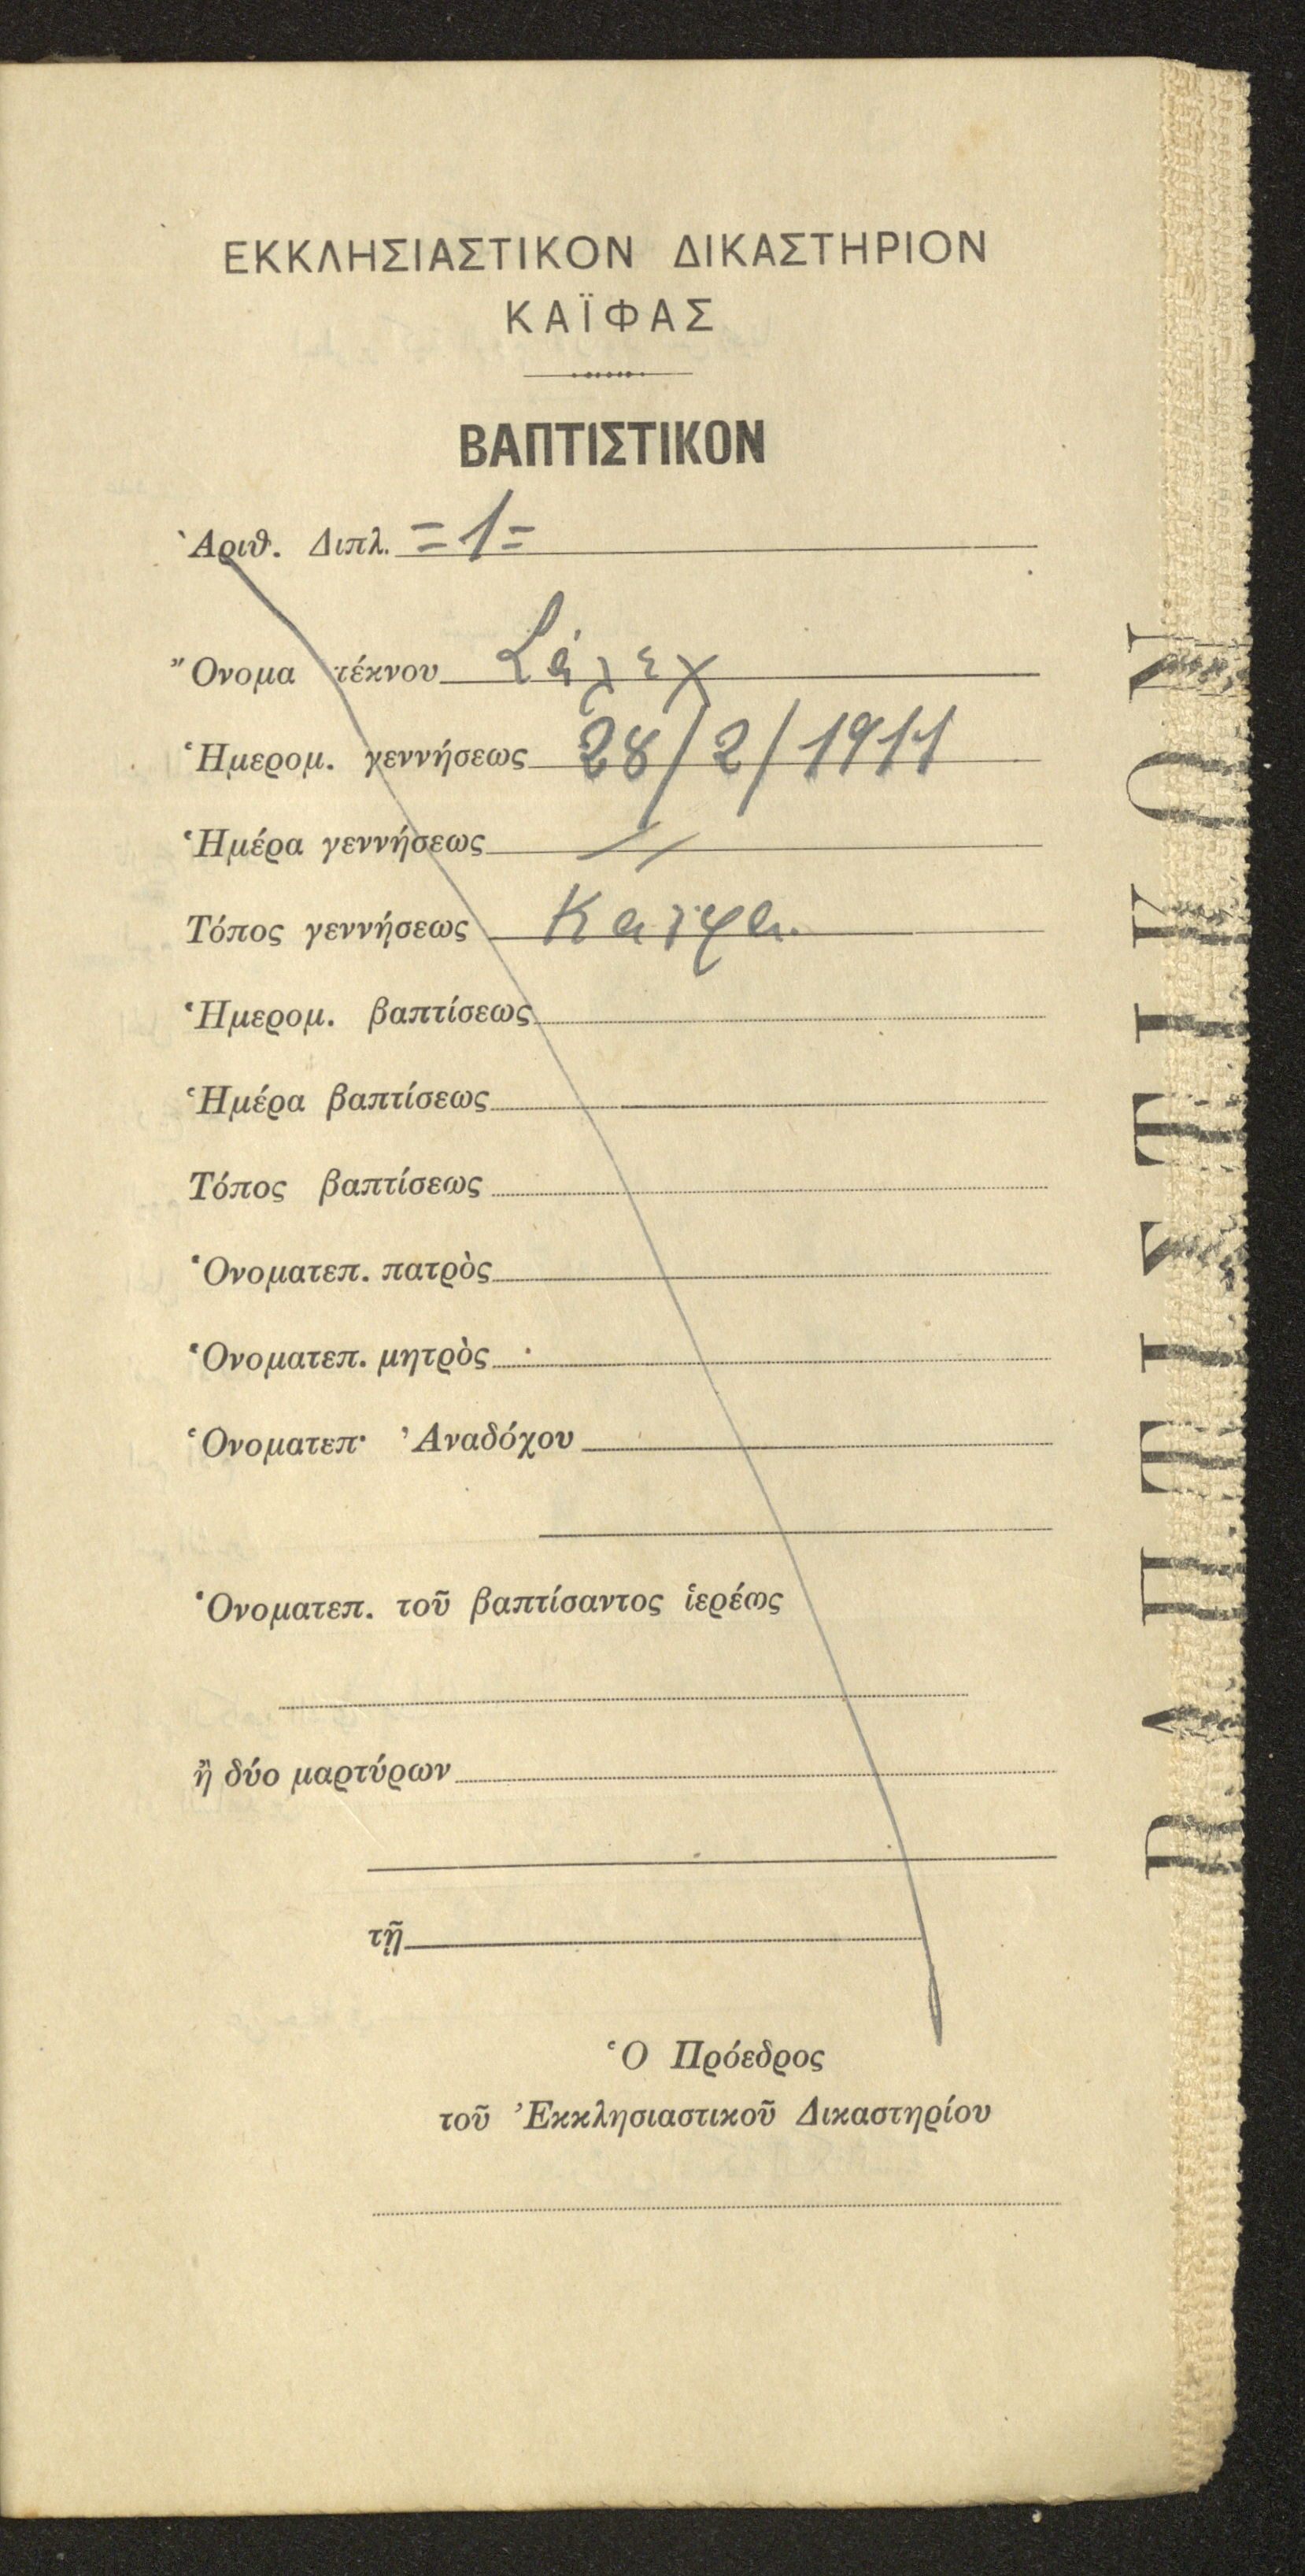 ΕΚΚΛΗΣΙΑΣΤΙΚΟΝ ΔΙΚΑΣΤΗΡΙΟΝ
ΚΑΪΦΑΣ
ΒΑΠΤΙΣΤΙΚΟΝ
Ἀριθ. Διπλ. =1=
Ὄνομα τέκνου Σάλεχ
Ἡμερομ. γεννήσεως 28/2/1911
Ἡμέρα γεννήσεως //
Τόπος γεννήσεως Κάϊφα.
Ἡμερομ. βαπτίσεως
Ἡμέρα βαπτίσεως
Τόπος βαπτίσεως
Ὁνοματεπ. πατρὸς
Ὁνοματεπ. μητρὸς
Ὁνοματεπ· Ἀναδόχου
Ὁνοματεπ. τοῦ βαπτίσαντος ἱερέως
ἢ δύο μαρτύρων
τῇ
Ὁ Πρόεδρος
τοῦ Ἐκκλησιαστικοῦ Δικαστηρίου
ΒΑΠΤΙΣΤΙΚΟΝ